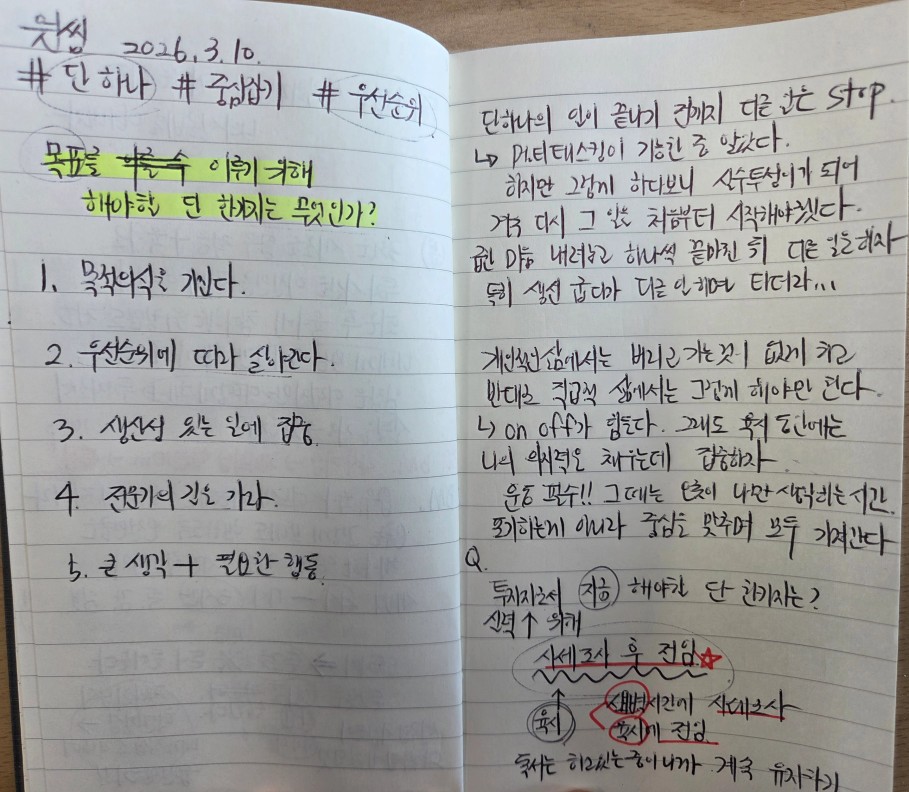 원씽 2026.3.10.
# 단 하나 # 중심잡기 # 우선순위
목표를 이룰 수 이루기 위해
해야할 단 한가지는 무엇인가?
1. 목적의식을 가진다.
2. 우선순위에 따라 살아간다.
3. 생산성 있는 일에 집중
4. 전문가의 길을 가라.
5. 큰 생각 + 필요한 행동
단하나의 일이 끝나기 전까지 다른 일은 stop.
↳ 멀티태스킹이 가능한 줄 알았다.
하지만 그렇게 하다보니 실수투성이가 되어
결국 다시 그 일을 처음부터 시작해야했다.
급한 마음 내려놓고 하나씩 끝마친 뒤 다른 일을 하자
특히 생선 굽다가 다른 일 하면 타더라...
개인적인 삶에서는 버리고 가는것이 없게 하고
반대로 직업적 삶에서는 그렇게 해야만 된다.
↳ on off가 힘들다. 그래도 육퇴 동안에는
나의 의지력을 채우는데 집중하자.
운동 필수!! 그때는 오롯이 나만 생각하는 시간.
포기하는게 아니라 중심을 맞추며 모두 가져간다
Q.
투자자로서 지금 해야할 단 한가지는?
실력 ↑ 위해
시세조사 후 전임 ☆
↑ 새벽시간에 시세조사
육시 육시에 전임
독서는 하고있는 중이니까 계속 유지하기